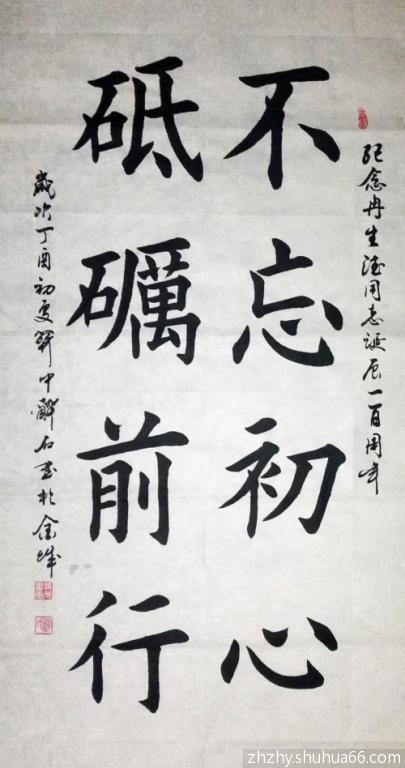 纪念冉生德同志诞辰一百周年
不忘初心
砥礪前行
歲次丁酉初夏羿中解石玉於金城
zhzhy.shuhua66.com